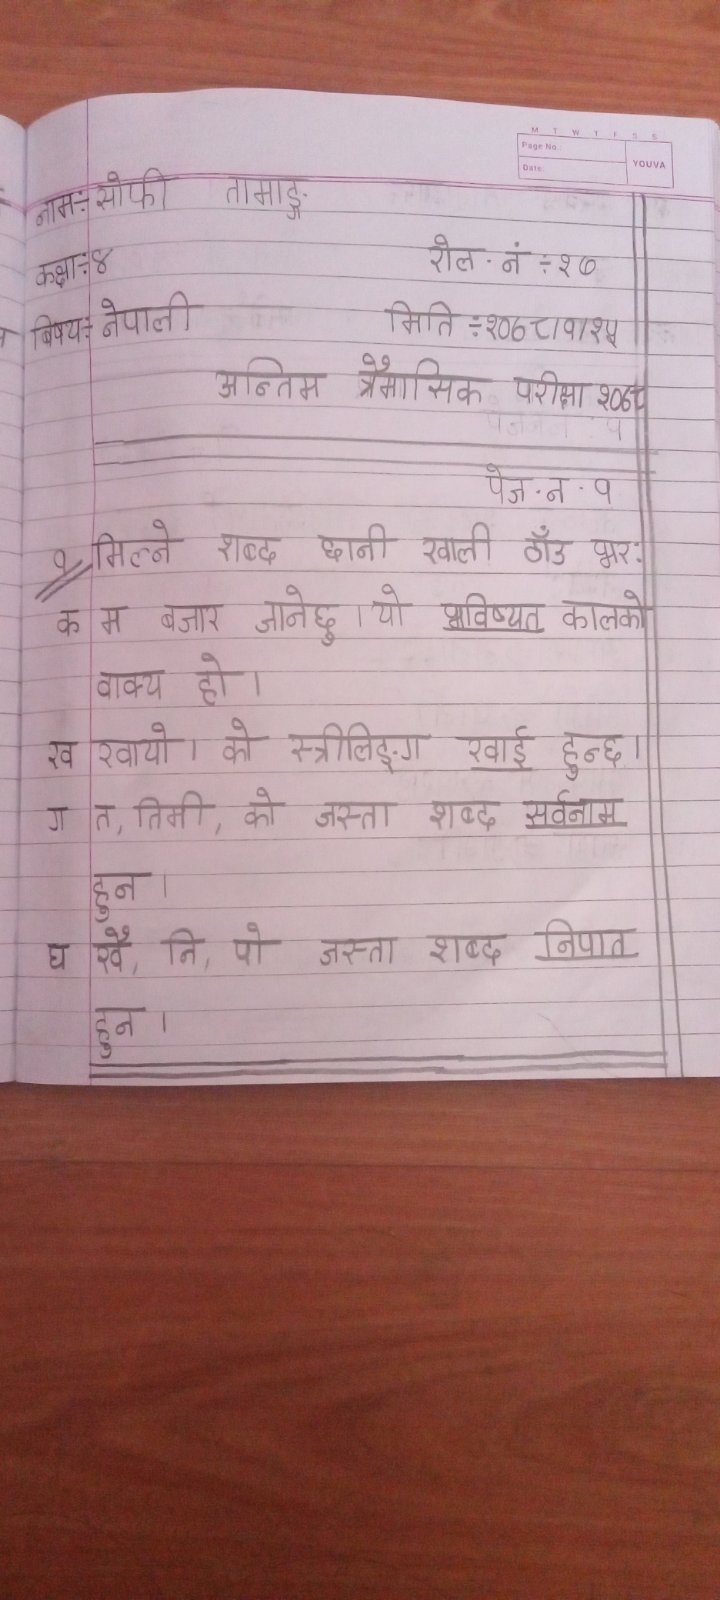 M T W T F S S
Page No.:
Date:
YOUVA
नामः-सोफी तामाङ्ग
कक्षाः-४ रोल.नं ः-२७
बिषयः-नेपाली मिति ः-२०७८।१।२५
अन्तिम त्रैमासिक परीक्षा २०७८
पेज.न.१
१ मिल्ने शब्द छानी खाली ठाँउ भर:
क म बजार जानेछु । यो भविष्यत कालको
वाक्य हो ।
ख खायो । को स्त्रीलिङ्ग खाई हुन्छ ।
ग त, तिमी, को जस्ता शब्द सर्वनाम
हुन ।
घ खै, नि, पो जस्ता शब्द निपात
हुन ।